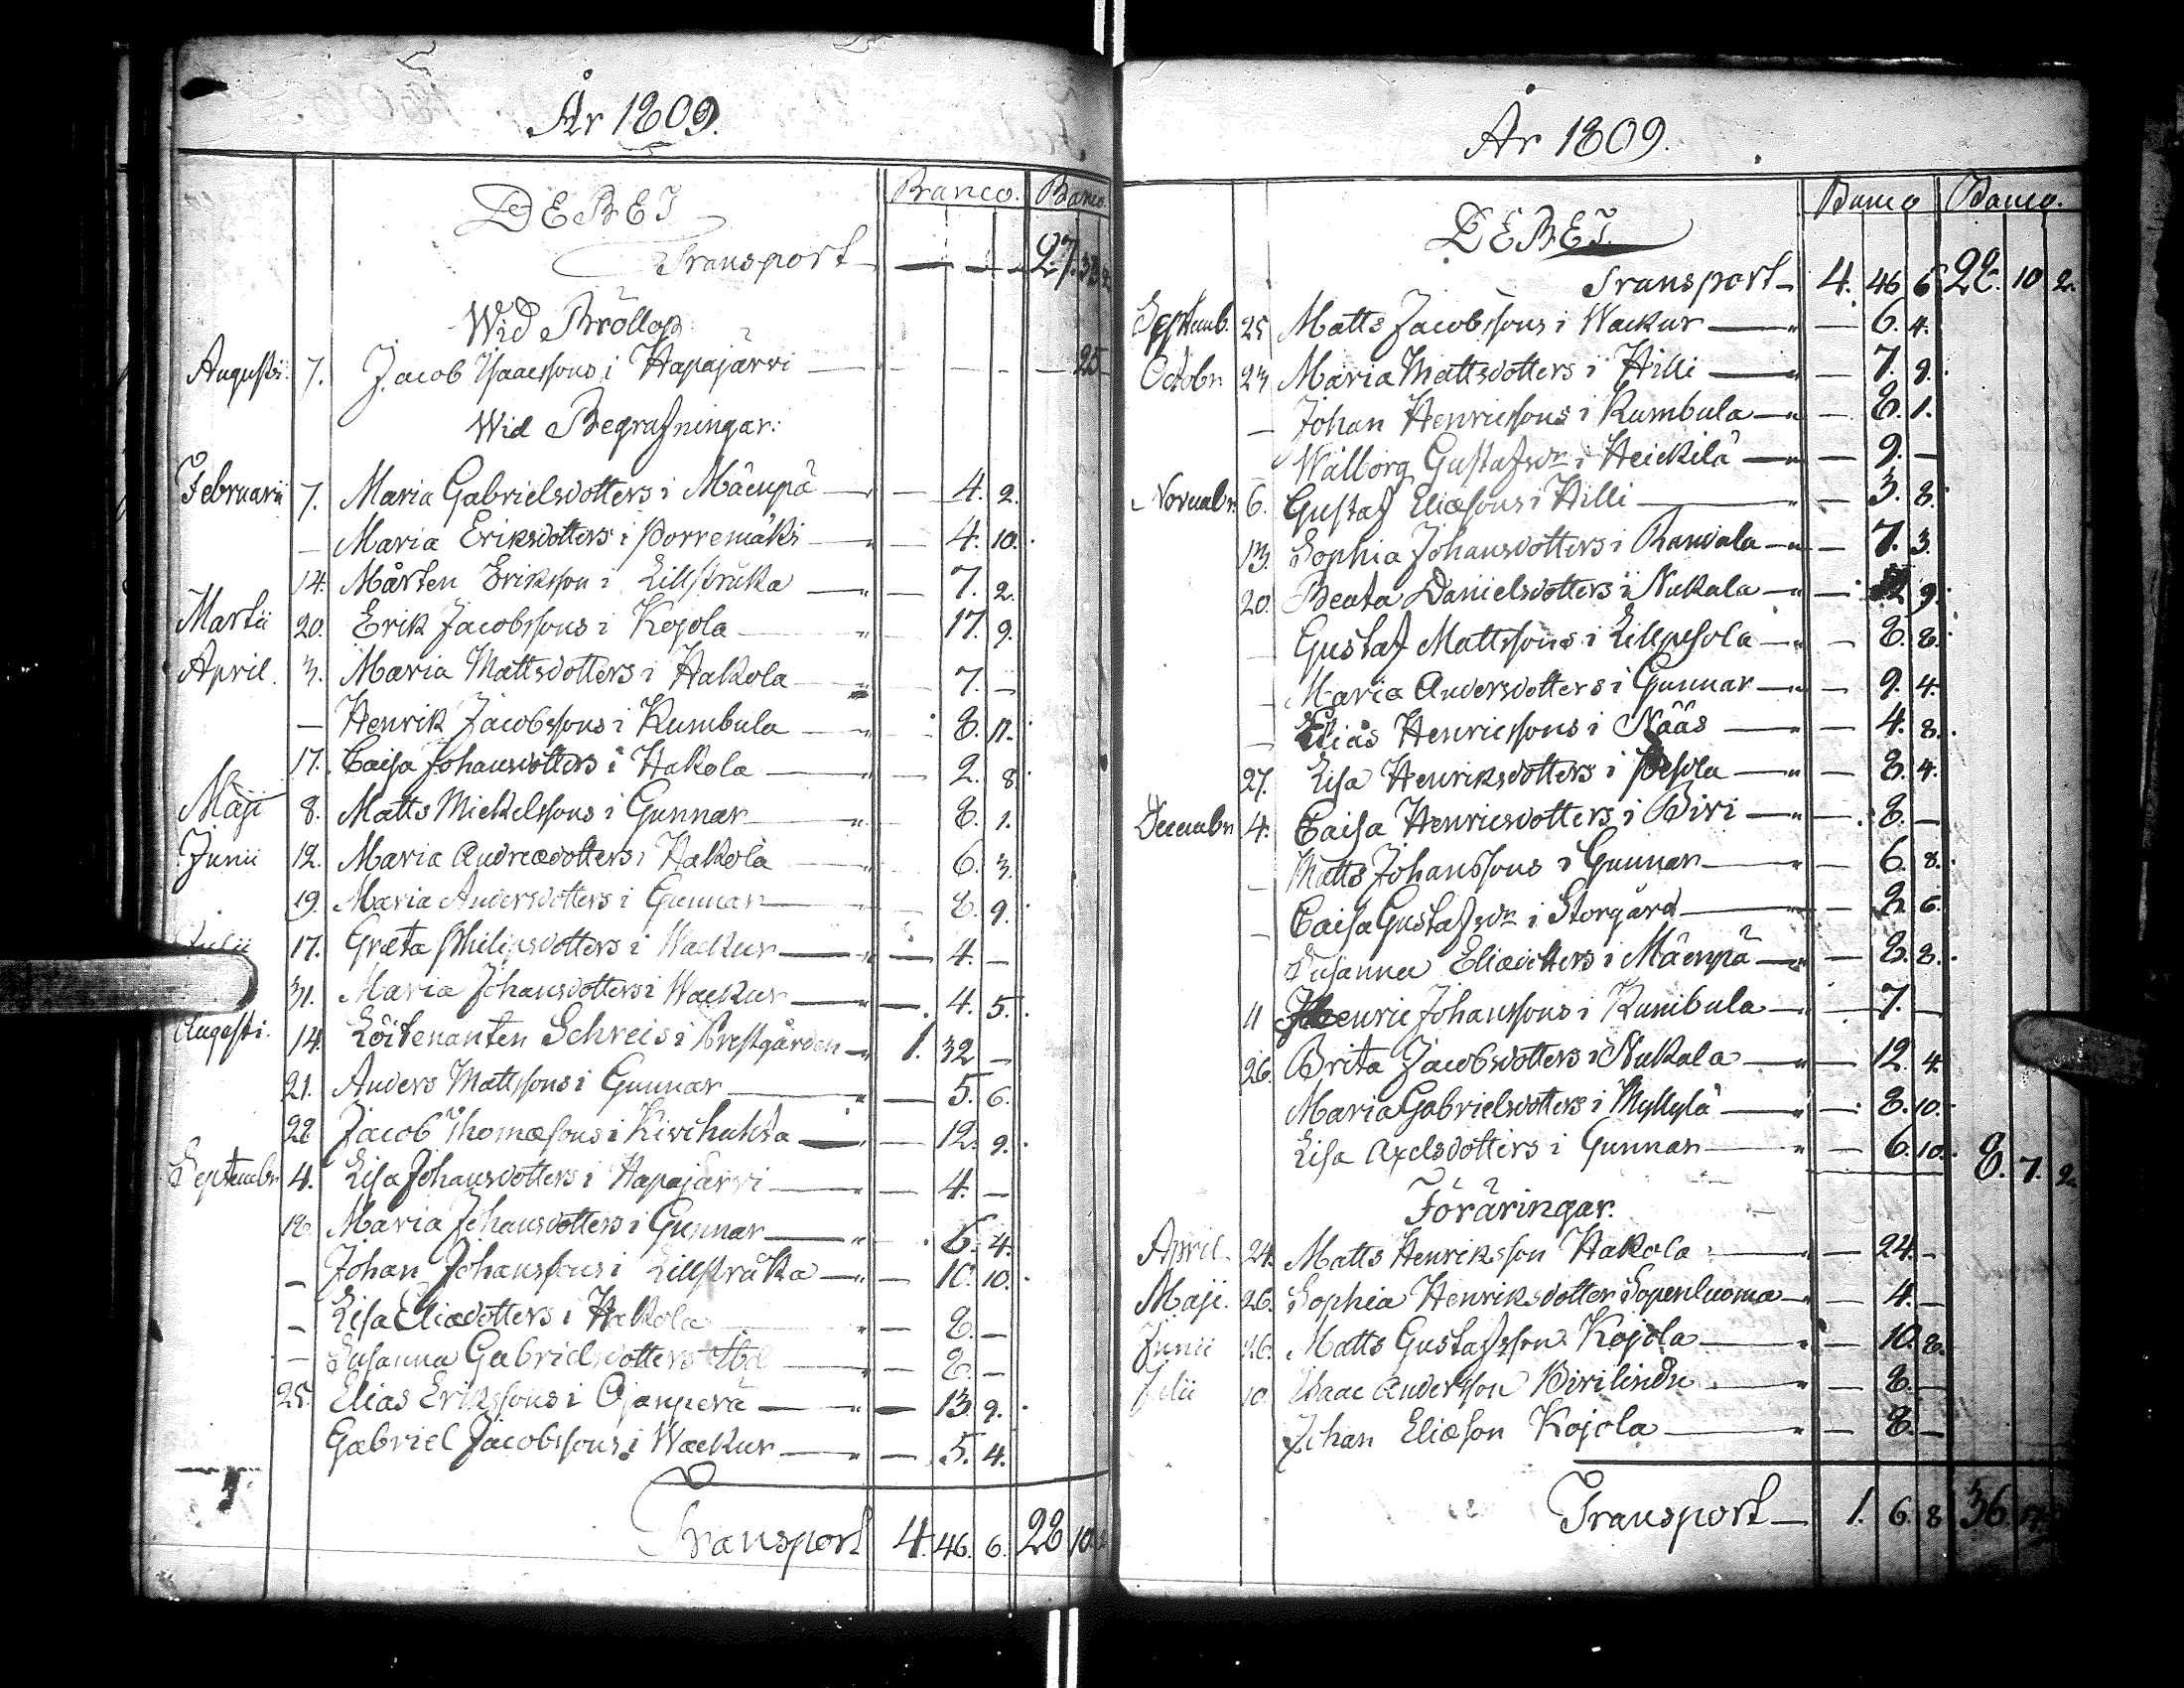 År 1809.
DEBET Banco. Banco.
Transport — — — 27. 33. 2.
Wid Bröllop:
Augusti. 7. Jacob Isaacssons i Hapajärvi — — — — 25 —
Wid Begrafningar:
Februarii 7. Maria Gabrielsdotters i Mäenpä — — 4. 2.
— Maria Eriksdotters i Porremäki — — 4. 10.
14. Mårten Eriksson i Lillstruka — — 7. 2.
Martii 20. Erik Jacobssons i Kojola — 17. 9.
April. 3. Maria Mattsdotters i Hakola — 7. —
— Henrik Jacobssons i Kumbula — 8. 11.
17. Caisa Johansdotters i Hakola — — 2. 8
Maji 8. Matts Mickelssons i Gunnar — 8. 1.
Junii 12. Maria Andreædotters i Hakola — 6. 3.
19. Maria Andersdotters i Gunnar — 8. 9.
Julii 17. Greta Philipsdotters i Wackur — — 4. —
31. Maria Johansdotters i Wackur — — 4. 5.
Augusti. 14. Löitenanten Schreis i Prestgården — 1. 32 —
21. Anders Mattssons i Gunnar — — 5. 6.
28 Jacob Thomæsons i Kivihuhta — — 12. 9.
Septembr. 4. Lisa Johansdotters i Hapajärvi — — 4. —
18. Maria Johansdotters i Gunnar — 6. 4.
— Johan Johanssons i Lillstruka — — 10. 10.
— Lisa Eliædotters i Hakola — 8. —
— Susanna Gabrielsdotters ibd — — 8. —
25. Elias Erikssons i Ojanperä — — 13. 9.
Gabriel Jacobssons i Wackur — — 5. 4.
Transport 4. 46. 6. 28 10.
År 1809.
DEBET. Banco Banco.
Transport — 4. 46 6 28. 10 2.
Septemb. 25 Matts Jacobssons i Wackur — — 6. 4.
Octobr. 23 Maria Mattsdotters i Hilli — — 7. 9.
— Johan Henricssons i Kumbula — — 8. 1.
Walborg Gustafsdr i Heickilä — — 9. —
Novembr. 6. Gustaf Eliæsons i Hilli — — 3. 8.
13. Sophia Johansdotters i Randala — — 7. 3.
20. Beata Danielsdotters i Nukala — — 9.
— Gustaf Mattssons i Lillpesola — — 8. 8.
— Maria Andersdotters i Gunnar — — 9. 4.
— Elias Henricssons i Nääs — — 4. 8.
27. Lisa Henriksdotters i Pesola — — 8. 4.
Decembr. 4. Caisa Henricsdotters i Biri — — 8. —
— Matts Johanssons i Gunnar — — 6. 8.
— Caisa Gustafsdr i Storgård — — 2. 6.
Susanna Eliædotters i Mäenpä — — 8. 8.
11 Henric Johanssons i Kumbula — — 7. —
26. Brita Jacobsdotters i Nukala — — 12. 4.
Maria Gabrielsdotters i Myllylä — — 8. 10.
Lisa Axelsdotters i Gunnar — — 6. 10. 8. 7. 2.
Föräringar.
April 24. Matts Henriksson Hakola — — 24. —
Maji. 26. Sophia Henriksdotter Sopenluoma — — 4. —
Junii 26. Matts Gustafsson Kojola — — 10. 8.
Julii 10. Isaac Andersson Birilinda — — 8. —
Johan Eliæson Kojola — — 8. —
Transport — 1. 6. 8 36. 17